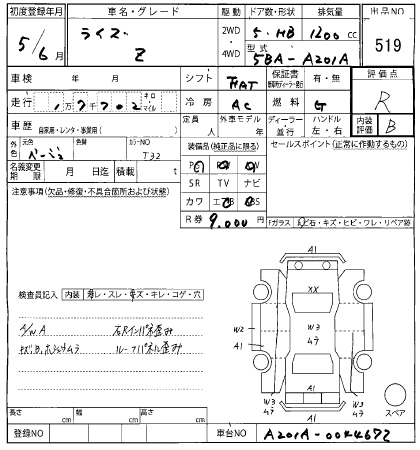 初度登録年月 車名・グレード 駆動 ドア数・形状 排気量 出品NO
5/6月 ライズ Z 2WD 4WD 5・HB 1200cc 519
型式 5BA-A201A
車検 年 月 シフト FAT 保証書 有・無 評価点
走行 1万7702 キロ マイル 冷房 AC 燃料 G R
車歴 自家用・レンタ・事業用( ) 定員 人 外車モデル 年 ディーラー 並行 ハンドル 左・右 内装評価 B
外色 元色 ベージュ 色替 カラーNO T32 装備品(純正品に限る) セールスポイント(正常に作動するもの)
名義変更期限 月 日迄 積載 t PS PW AW
注意事項(欠品・修復・不具合箇所および状態) SR TV ナビ
カワ エアB ABS
R券 9,000円 Fガラス 飛石・キズ・ヒビ・ワレ・リペア跡
A1
検査員記入 内装 ヨゴレ・スレ・キズ・キレ・コゲ・穴
XX
A/W A 右Rインパネ歪み W2 W3
キズ、B、ボデームラ ルーフパネル歪み A1 ムラ
W3 ムラ A1 W3 ムラ
A1 スペア
長さ cm 幅 cm 高さ cm
登録NO 車台NO A201A-0044672